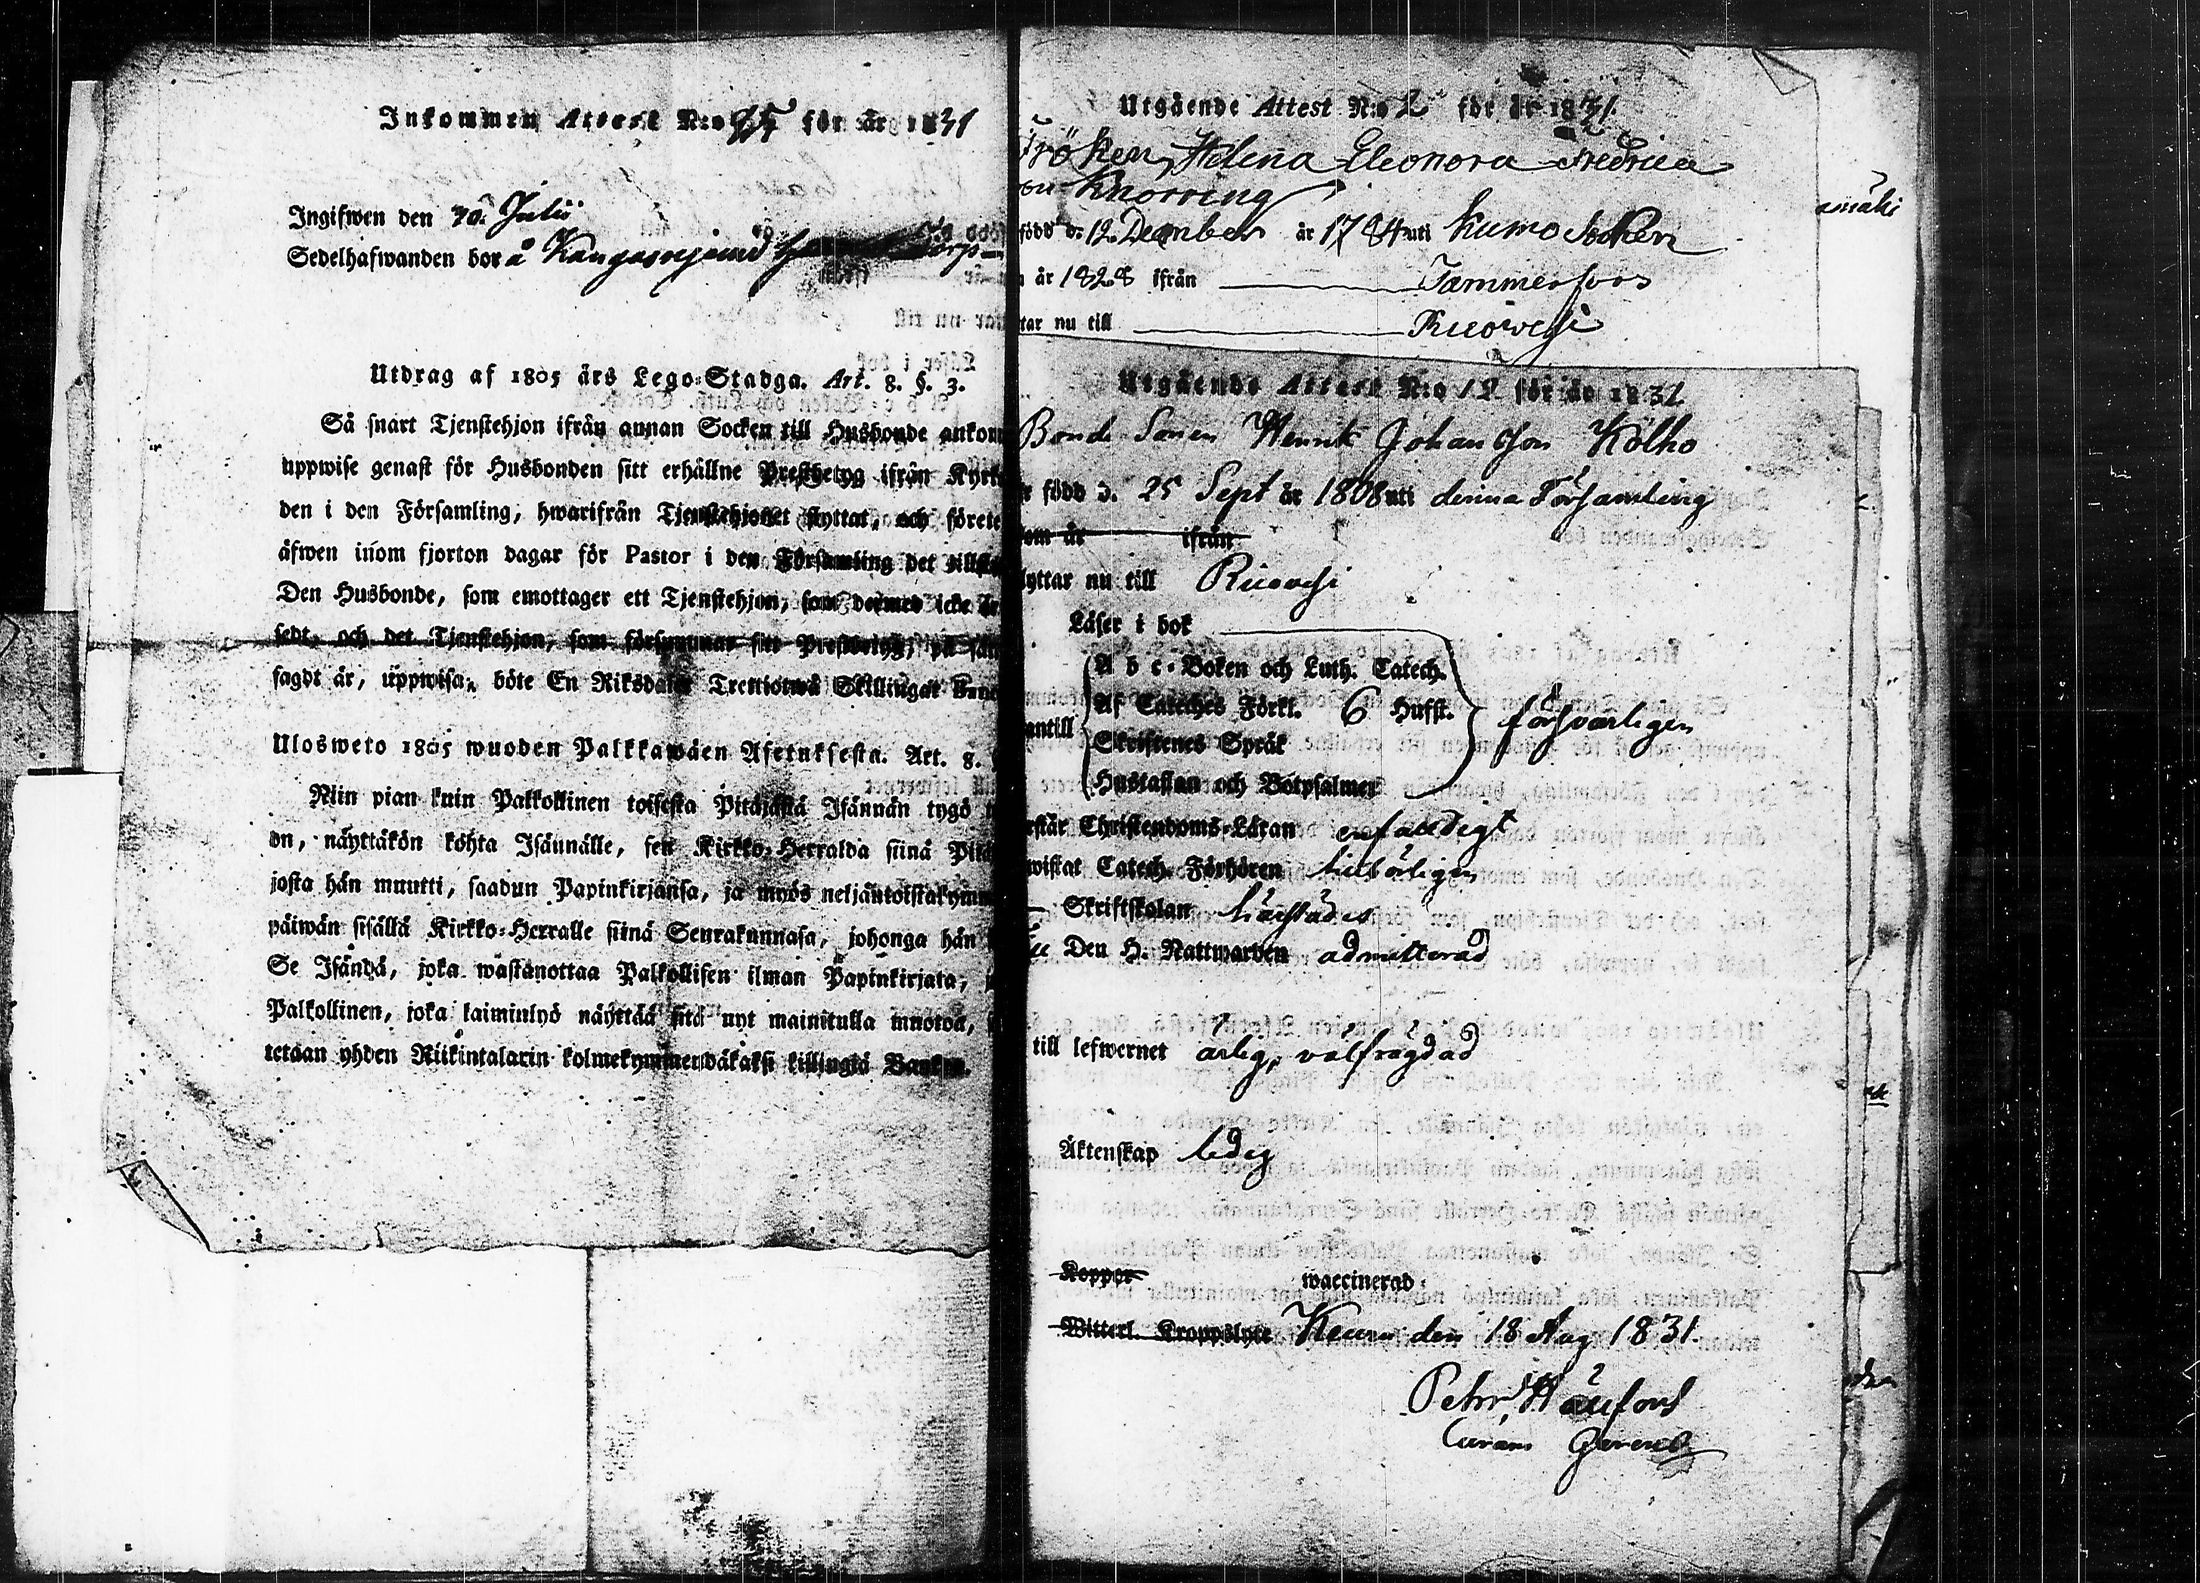 Inkommen Attest N:o för år 1831
Ingifwen den 20 Julii
Sedelhafwanden bor å
Utdrag af 1805 års Lego-Stadga. Art. 8. §. 3.
Så snart Tjenstehjon ifrån annan Socken till Husbonde ankom
uppwise genast för Husbonden sitt erhållne Prestbetyg ifrån Kyrk
den i den Församling, hwarifrån Tjenstehjonet flyttat, och förete
äfwen inom fjorton dagar för Pastor i den Församling det
Den Husbonde, som emottager ett Tjenstehjon, som dermed icke är
sedt, och det Tjenstehjon, som försummar sitt Prestbetyg, på sätt
sagdt är, uppwisa, böte En Riksdaler Trettiotwå Skillingar Banco
Ulosweto 1805 wuoden Palkkawäen Asetuksesta. Art. 8.
Niin pian kuin Palkollinen toisesta Pitäjästä Isännän tygö
on, näyttäkön kohta Isännälle, sen Kirkko-Herralda siinä Pitä
josta hän muutti, saadun Papinkirjansa, ja myös neljäntoistakymm
päiwän sisällä Kirkko-Herralle siinä Seurakunnasa, johonga hän
Se Isändä, joka wastanottaa Palkollisen ilman Papinkirjata,
Palkollinen, joka laiminlyö näyttää sitä nyt mainitulla muotoa,
tetaan yhden Riikintalarin kolmekymmendäkaksi killingiä Bankos.
Utgående Attest N:o 2 för år 1831.
Fröken Helena Eleonora Fredrica
von Knorring
född d. 12 December år 1784 uti Kumo Socken
år 1828 ifrån Tammerfors
tar nu till Ruowesi
Utgående Attest N:o 12 för år 1831
Bonde Sonen Henrik Johansson Kolho
född d. 25 Sept år 1808 uti denna Församling
om år ifrån
lyttar nu till Ruowesi
Läser i bok
A b c-Boken och Luth. Catech.
Af Cateches Förkl. 6 Hufst.
antill försvarligen
Skriftenes Språk
Hustaflan och Botpsalmer
rstår Christendoms-Läran enfaldigt
wistat Catech. Förhören behörligen
Skriftskolan härstädes
Den H. Nattwarden admitterad
till lefwernet ärlig, välfrägdad
Äktenskap ledig
Koppor waccinerad
Witterl. Kroppslyte Keuru den 18 Aug 1831.